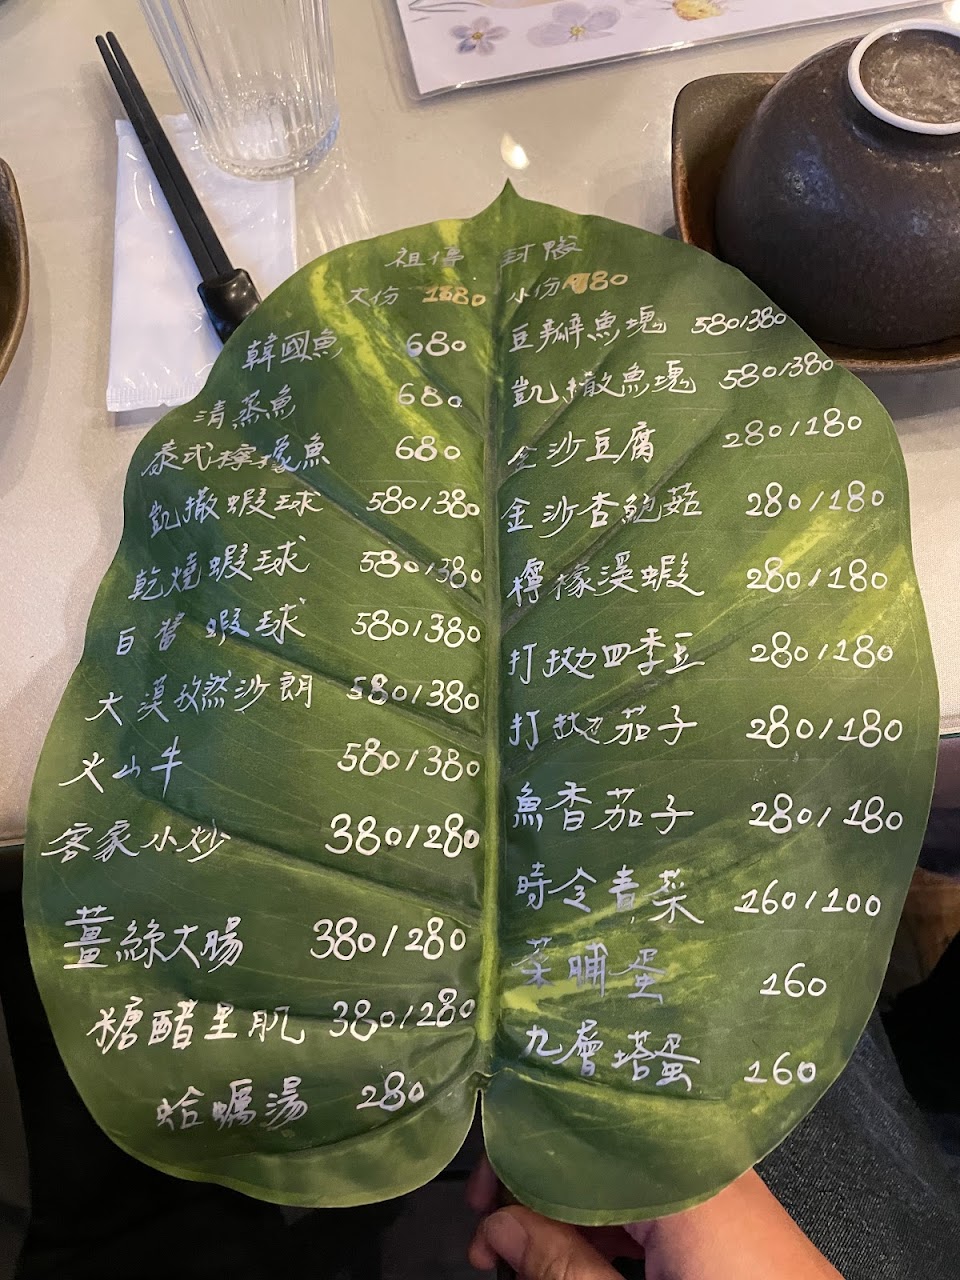 祖傳 封鴨
大份 1380 小份 780
韓國魚 680
清蒸魚 680
泰式檸檬魚 680
凱撒蝦球 580/380
乾燒蝦球 580/380
百醬蝦球 580/380
大漠孜然沙朗 580/380
火山牛 580/380
客家小炒 380/280
薑絲大腸 380/280
糖醋里肌 380/280
蛤蠣湯 280
豆瓣魚塊 580/380
凱撒魚塊 580/380
金沙豆腐 280/180
金沙杏鮑菇 280/180
檸檬漫蝦 280/180
打拋四季豆 280/180
打拋茄子 280/180
魚香茄子 280/180
時令青菜 160/100
菜脯蛋 160
九層塔蛋 160